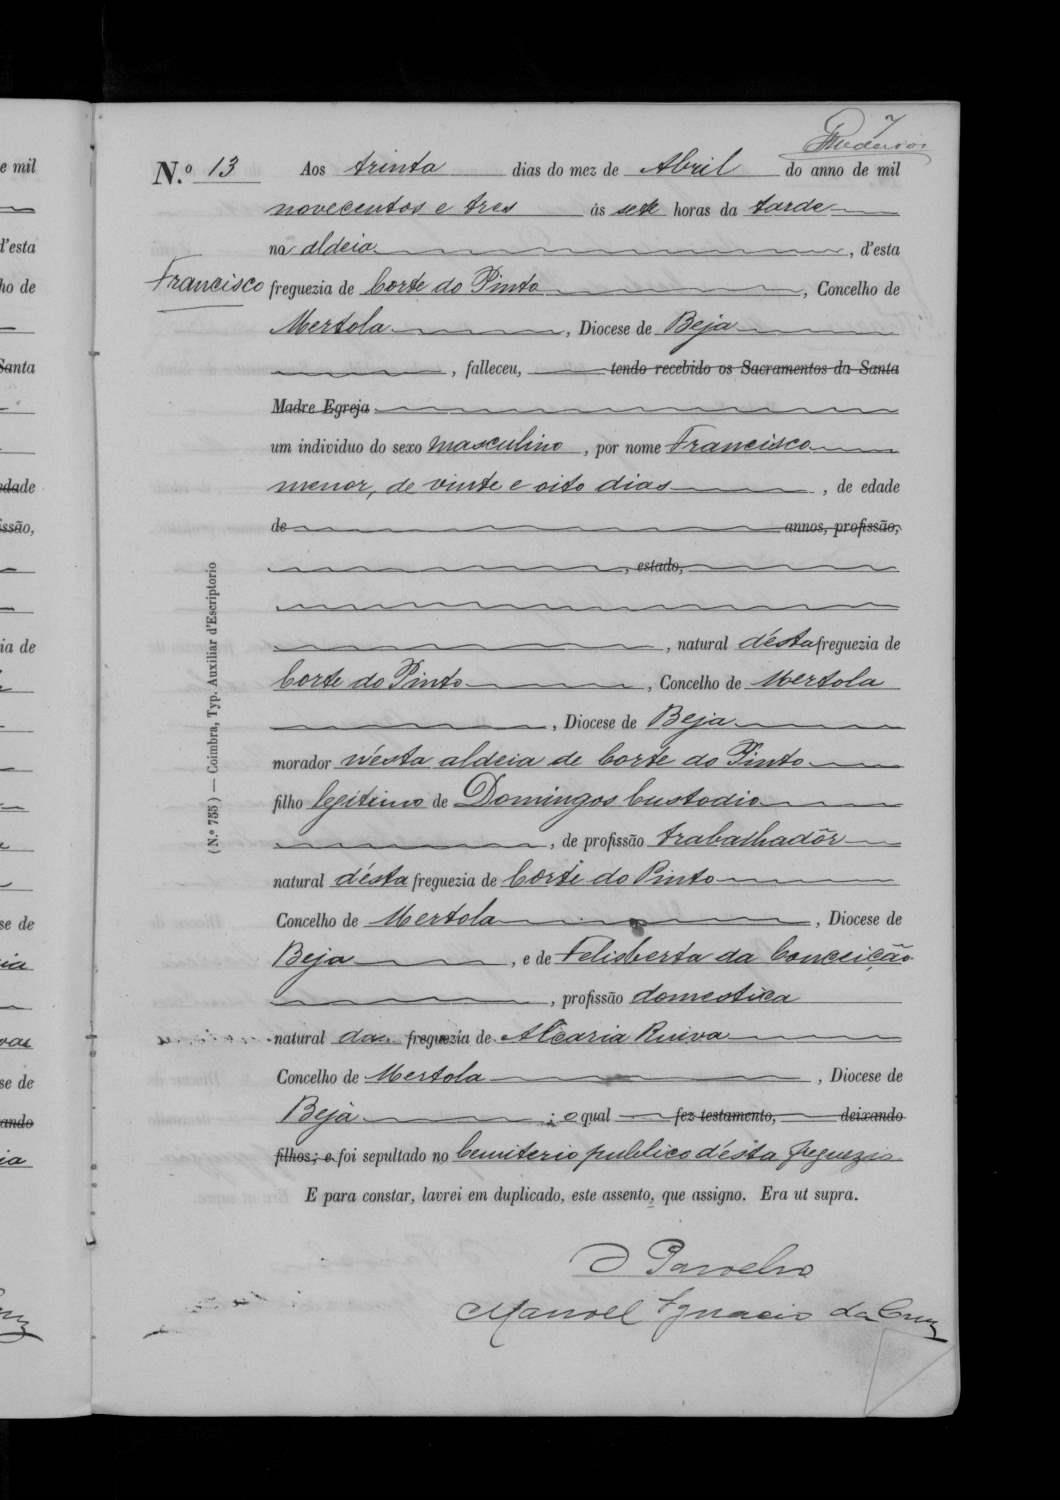 7
N.º 13 Aos trinta dias do mez de Abril do anno de mil
novecentos e tres ás sete horas da tarde
na aldeia, d'esta
Francisco
freguezia de Corte do Pinto, Concelho de
Mertola, Diocese de Beja
, falleceu, tendo recebido os Sacramentos da Santa
Madre Egreja
um individuo do sexo masculino, por nome Francisco
menor, de vinte e oito dias, de edade
de annos, profissão,
, estado,
, natural d'ésta freguezia de
Corte do Pinto, Concelho de Mertola
, Diocese de Beja
morador n'ésta aldeia de Corte do Pinto
filho legitimo de Domingos Custodio
, de profissão trabalhadôr
natural d'ésta freguezia de Corte do Pinto
Concelho de Mertola, Diocese de
Beja, e de Felisberta da Conceição
, profissão domestica
natural da freguezia de Alcaria Ruiva
Concelho de Mertola, Diocese de
Beja; o qual fez testamento, deixando
filhos; e foi sepultado no Cemiterio publico d'ésta freguezia
E para constar, lavrei em duplicado, este assento, que assigno. Era ut supra.
O Parocho
Manoel Ignacio da Cruz
(N.º 755) — Coimbra, Typ. Auxiliar d'Escriptorio
e mil
d'esta
ho de
Santa
edade
issão,
ia de
se de
ia
vas
se de
ando
ia